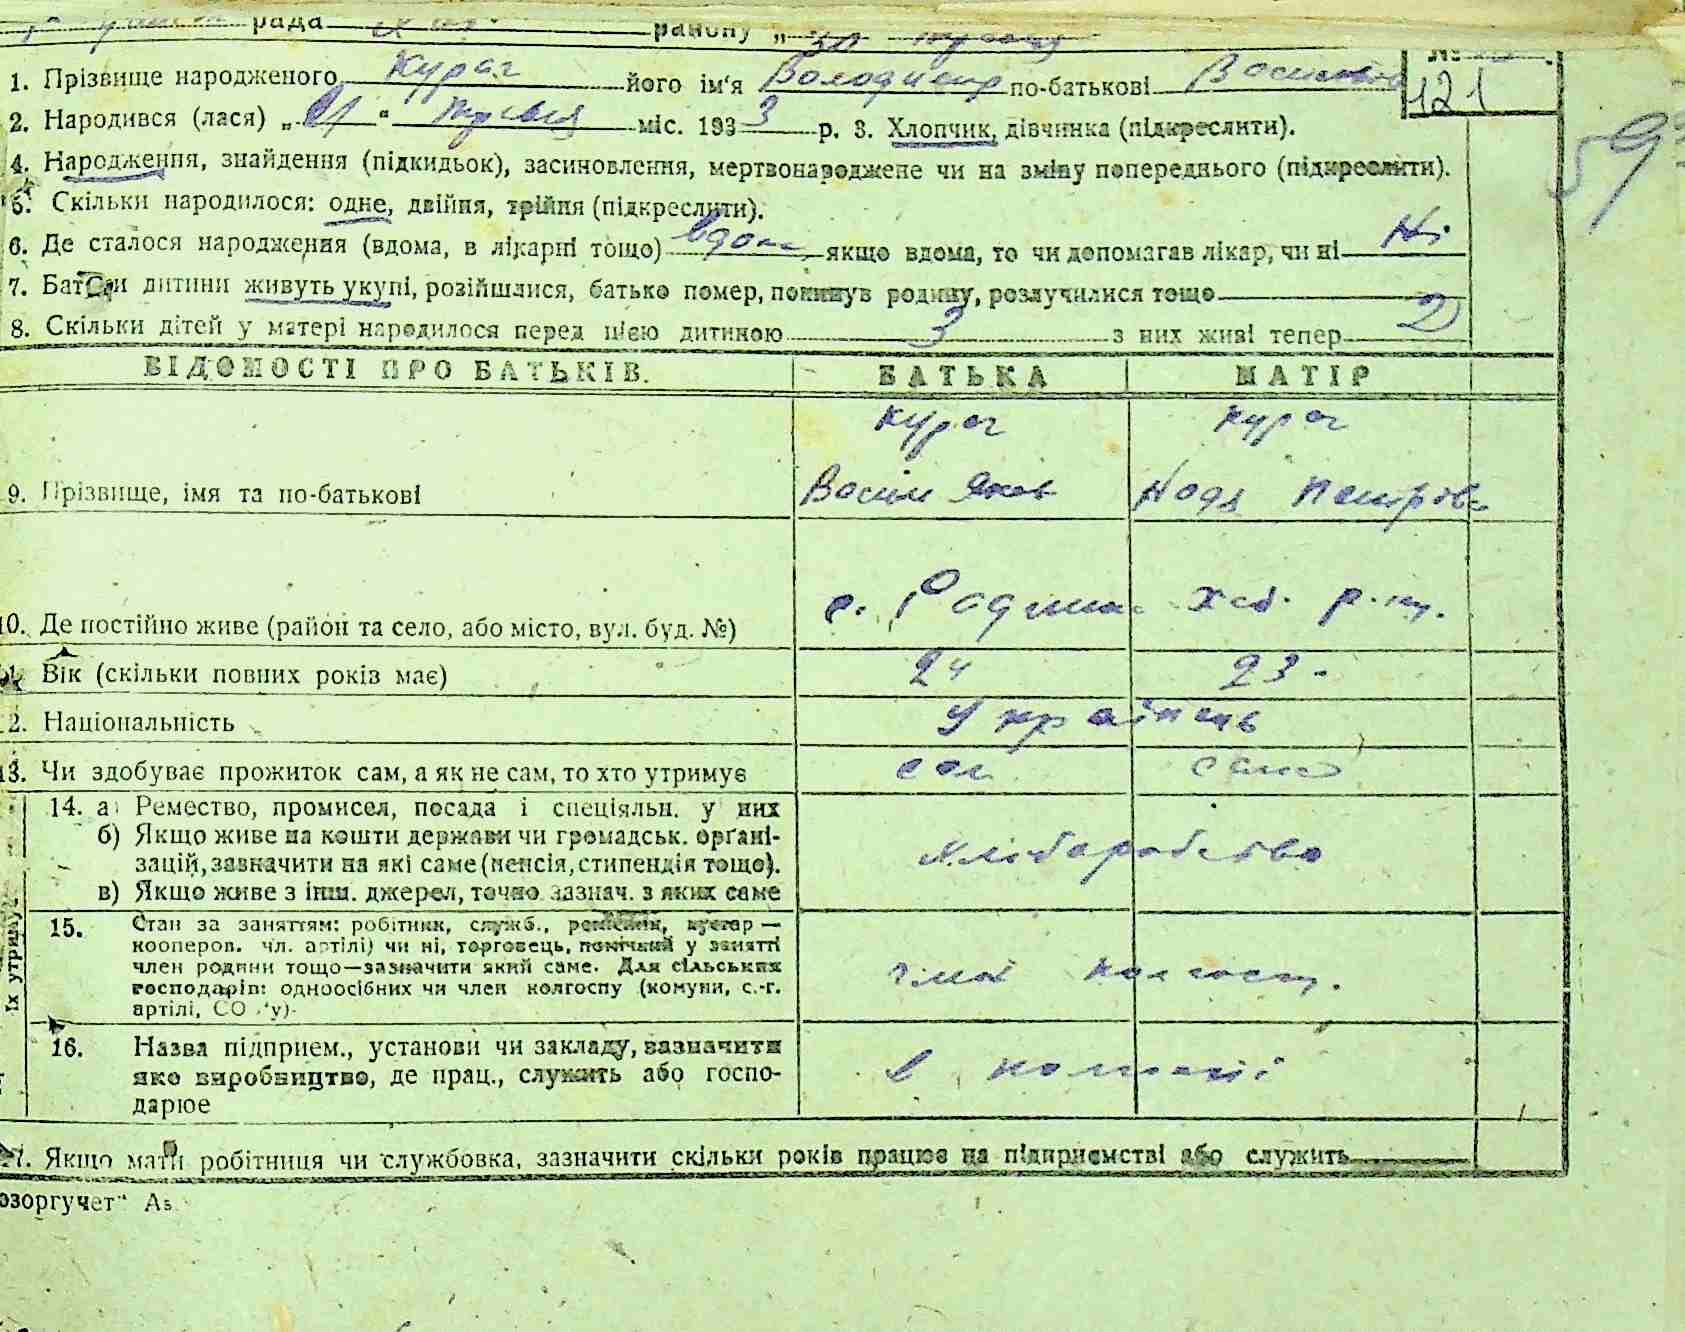 рада району „
1. Прізвище народженого Курач його ім'я Володимир по-батькові Васильов
№ 121
2. Народився (лася) „ " травня міс. 1933 р. 3. Хлопчик, дівчинка (підкреслити).
59
4. Народження, знайдення (підкидьок), засиновлення, мертвонароджене чи на зміну попереднього (підкреслити).
5. Скільки народилося: одне, двійня, трійня (підкреслити).
6. Де сталося народження (вдома, в лікарні тощо) вдома, якщо вдома, то чи допомагав лікар, чи ні Ні
7. Батьки дитини живуть укупі, розійшлися, батько помер, покинув родину, розлучилися тощо
8. Скільки дітей у матері народилося перед цією дитиною 3 з них живі тепер 2
ВІДОМОСТІ ПРО БАТЬКІВ. БАТЬКА МАТІР
Курач Курач
9. Прізвище, імя та по-батькові Васил Яков Надя Петрівн
10. Де постійно живе (район та село, або місто, вул. буд. №) с. р.н.
11. Вік (скільки повних років має) 24 23
12. Національність Українець
13. Чи здобуває прожиток сам, а як не сам, то хто утримує сам сама
14. а) Ремество, промисел, посада і спеціяльн. у них
б) Якщо живе на кошти держави чи громадськ. орґані-
зацій, зазначити на які саме (пенсія, стипендія тощо).
в) Якщо живе з інш. джерел, точно зазнач. з яких саме
хліборобство
15. Стан за заняттям: робітник, служб., ремісник, кустар —
кооперов. чл. артілі) чи ні, торговець, помічний у занятті
член родини тощо—зазначити який саме. Для сільських
господарів: одноосібних чи член колгоспу (комуни, с.-г.
артілі, СО 'у)
член колгосп.
16. Назва підприєм., установи чи закладу, зазначити
яке виробництво, де прац., служить або госпо-
дарює
в колгоспі
їх утримує
17. Якщо мати робітниця чи службовка, зазначити скільки років працює на підприємстві або служить
озоргучет" Аз